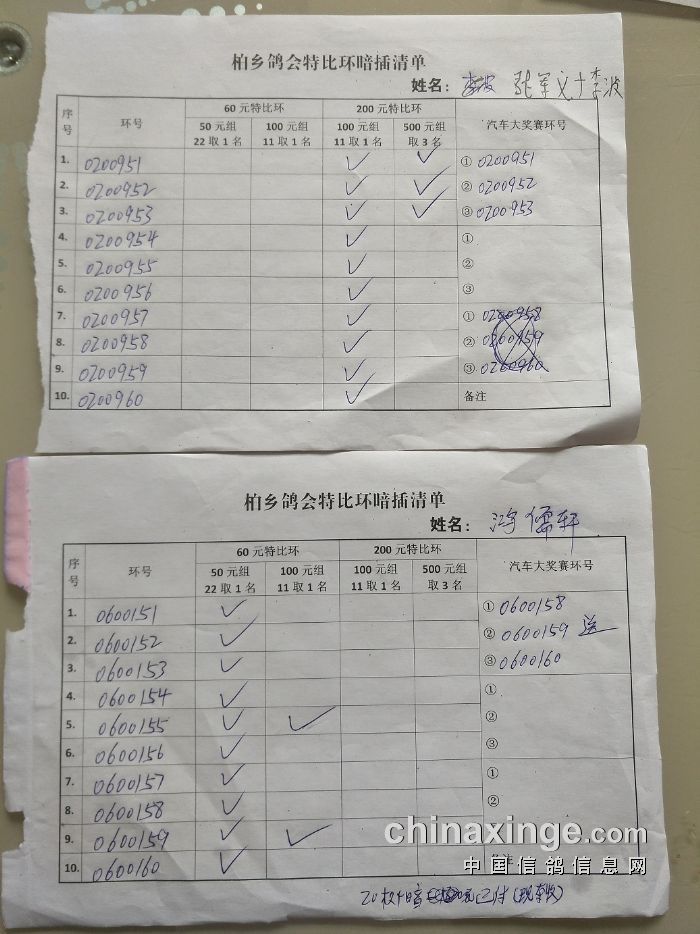 柏乡鸽会特比环暗插清单
姓名： 李波 张军义+李波
序号 环号 60 元特比环 200 元特比环 汽车大奖赛环号
50 元组 22 取 1 名 100 元组 11 取 1 名 100 元组 11 取 1 名 500 元组 取 3 名
1. 0200951 ✓ ✓ ① 0200951
2. 0200952 ✓ ✓ ② 0200952
3. 0200953 ✓ ✓ ③ 0200953
4. 0200954 ✓ ①
5. 0200955 ✓ ②
6. 0200956 ✓ ③
7. 0200957 ✓ ① 0200958
8. 0200958 ✓ ② 0200959
9. 0200959 ✓ ③ 0200960
10. 0200960 ✓ 备注
柏乡鸽会特比环暗插清单
姓名： 鸿儒轩
序号 环号 60 元特比环 200 元特比环 汽车大奖赛环号
50 元组 22 取 1 名 100 元组 11 取 1 名 100 元组 11 取 1 名 500 元组 取 3 名
1. 0600151 ✓ ① 0600158
2. 0600152 ✓ ② 0600159 送
3. 0600153 ✓ ③ 0600160
4. 0600154 ✓ ①
5. 0600155 ✓ ✓ ②
6. 0600156 ✓ ③
7. 0600157 ✓ ①
8. 0600158 ✓ ②
9. 0600159 ✓ ✓
10. 0600160 ✓ 备注
chinaxinge.com
中国信鸽信息网
已付